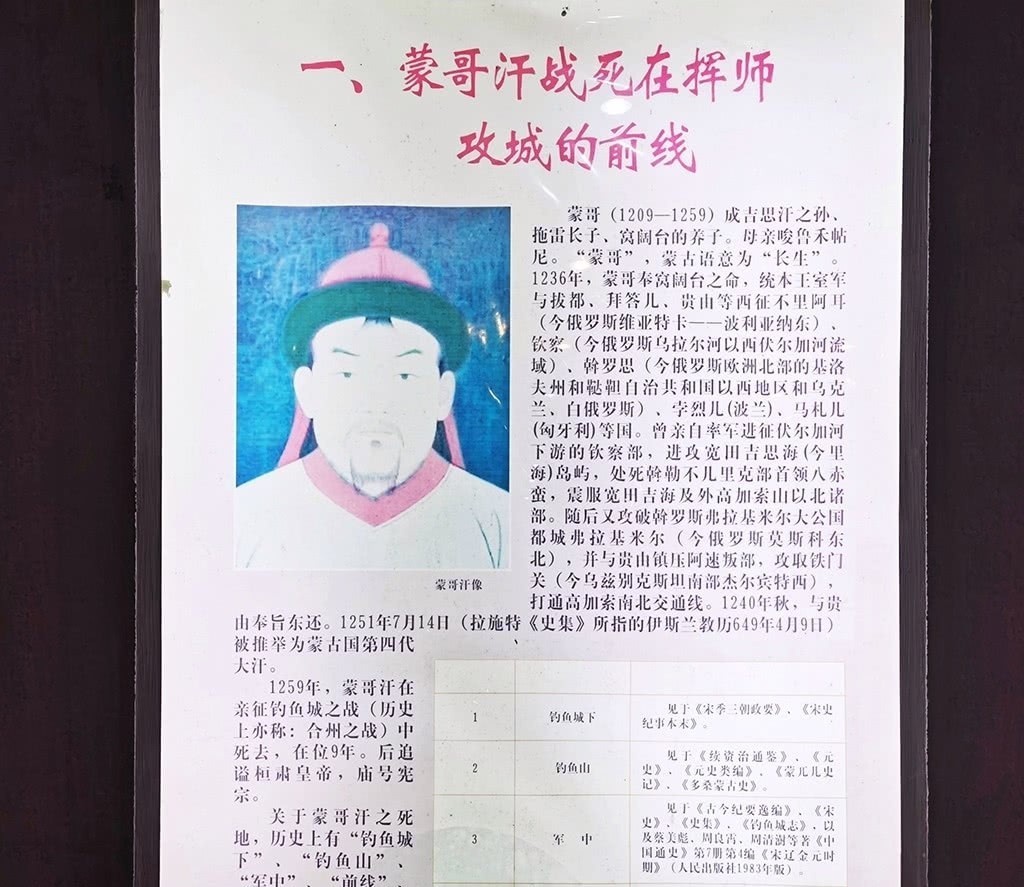 一、蒙哥汗战死在挥师
攻城的前线
蒙哥（1209—1259）成吉思汗之孙、
拖雷长子、窝阔台的养子。母亲唆鲁禾帖
尼。“蒙哥”，蒙古语意为“长生”。
1236年，蒙哥奉窝阔台之命，统本王室军
与拔都、拜答儿、贵由等西征不里阿耳
（今俄罗斯维亚特卡——波利亚纳东）、
钦察（今俄罗斯乌拉尔河以西伏尔加河流
域）、斡罗思（今俄罗斯欧洲北部的基洛
夫州和鞑靼自治共和国以西地区和乌克
兰、白俄罗斯）、孛烈儿(波兰)、马札儿
(匈牙利)等国。曾亲自率军进征伏尔加河
下游的钦察部，进攻宽田吉思海(今里
海)岛屿，处死斡勒不儿里克部首领八赤
蛮，震服宽田吉海及外高加索山以北诸
部。随后又攻破斡罗斯弗拉基米尔大公国
都城弗拉基米尔（今俄罗斯莫斯科东
北），并与贵由镇压阿速叛部，攻取铁门
关（今乌兹别克斯坦南部杰尔宾特西），
打通高加索南北交通线。1240年秋，与贵
蒙哥汗像
由奉旨东还。1251年7月14日（拉施特《史集》所指的伊斯兰教历649年4月9日）
被推举为蒙古国第四代
大汗。
1259年，蒙哥汗在
亲征钓鱼城之战（历史
上亦称：合州之战）中
死去，在位9年。后追
谥桓肃皇帝，庙号宪
宗。
关于蒙哥汗之死
地，历史上有“钓鱼城
下”、“钓鱼山”、
“军中”、“前线”、
1 钓鱼城下 见于《宋季三朝政要》、《宋史
纪事本末》。
2 钓鱼山 见于《续资治通鉴》、《元
史》、《元史类编》、《蒙兀儿史
记》、《多桑蒙古史》。
3 军 中 见于《古今纪要逸编》、《宋
史》、《史集》、《钓鱼城志》，以
及蔡美彪、周良霄、周清澍等著《中
国通史》第7册第4编《宋辽金元时
期》（人民出版社1983年版）。